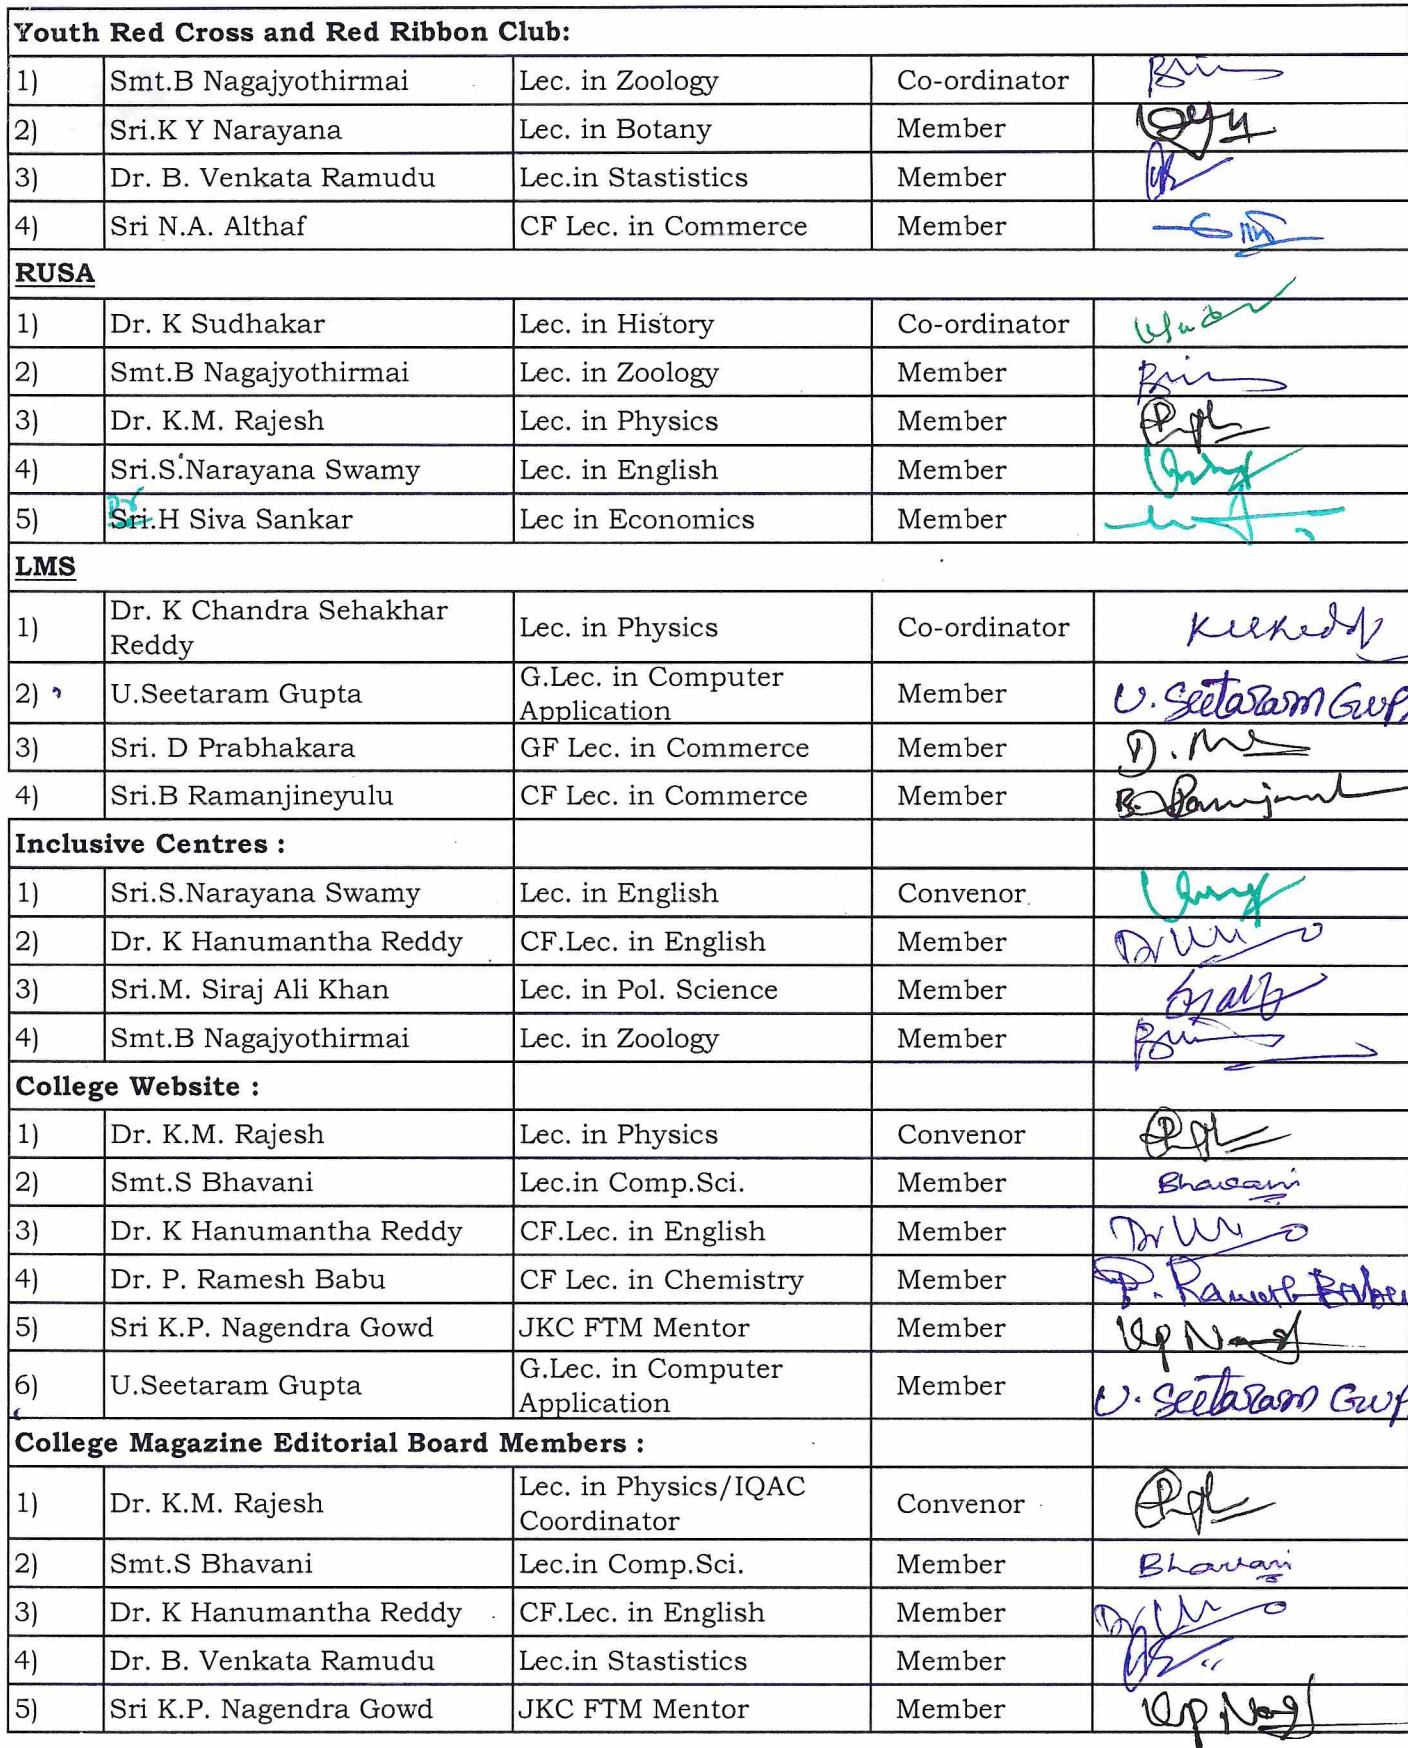 Youth Red Cross and Red Ribbon Club:
1) Smt.B Nagajyothirmai Lec. in Zoology Co-ordinator
2) Sri.K Y Narayana Lec. in Botany Member
3) Dr. B. Venkata Ramudu Lec.in Stastistics Member
4) Sri N.A. Althaf CF Lec. in Commerce Member
RUSA
1) Dr. K Sudhakar Lec. in History Co-ordinator
2) Smt.B Nagajyothirmai Lec. in Zoology Member
3) Dr. K.M. Rajesh Lec. in Physics Member
4) Sri.S.Narayana Swamy Lec. in English Member
Dr
5) Sri.H Siva Sankar Lec in Economics Member
LMS
1) Dr. K Chandra Sehakhar
Reddy Lec. in Physics Co-ordinator
2) U.Seetaram Gupta G.Lec. in Computer
Application Member U. Seetaram Gup
3) Sri. D Prabhakara GF Lec. in Commerce Member
4) Sri.B Ramanjineyulu CF Lec. in Commerce Member
Inclusive Centres :
1) Sri.S.Narayana Swamy Lec. in English Convenor
2) Dr. K Hanumantha Reddy CF.Lec. in English Member
3) Sri.M. Siraj Ali Khan Lec. in Pol. Science Member
4) Smt.B Nagajyothirmai Lec. in Zoology Member
College Website :
1) Dr. K.M. Rajesh Lec. in Physics Convenor
2) Smt.S Bhavani Lec.in Comp.Sci. Member Bhavani
3) Dr. K Hanumantha Reddy CF.Lec. in English Member
4) Dr. P. Ramesh Babu CF Lec. in Chemistry Member P. Ramesh Babu
5) Sri K.P. Nagendra Gowd JKC FTM Mentor Member
6) U.Seetaram Gupta G.Lec. in Computer
Application Member U. Seetaram Gup
College Magazine Editorial Board Members :
1) Dr. K.M. Rajesh Lec. in Physics/IQAC
Coordinator Convenor
2) Smt.S Bhavani Lec.in Comp.Sci. Member Bhavani
3) Dr. K Hanumantha Reddy CF.Lec. in English Member
4) Dr. B. Venkata Ramudu Lec.in Stastistics Member
5) Sri K.P. Nagendra Gowd JKC FTM Mentor Member